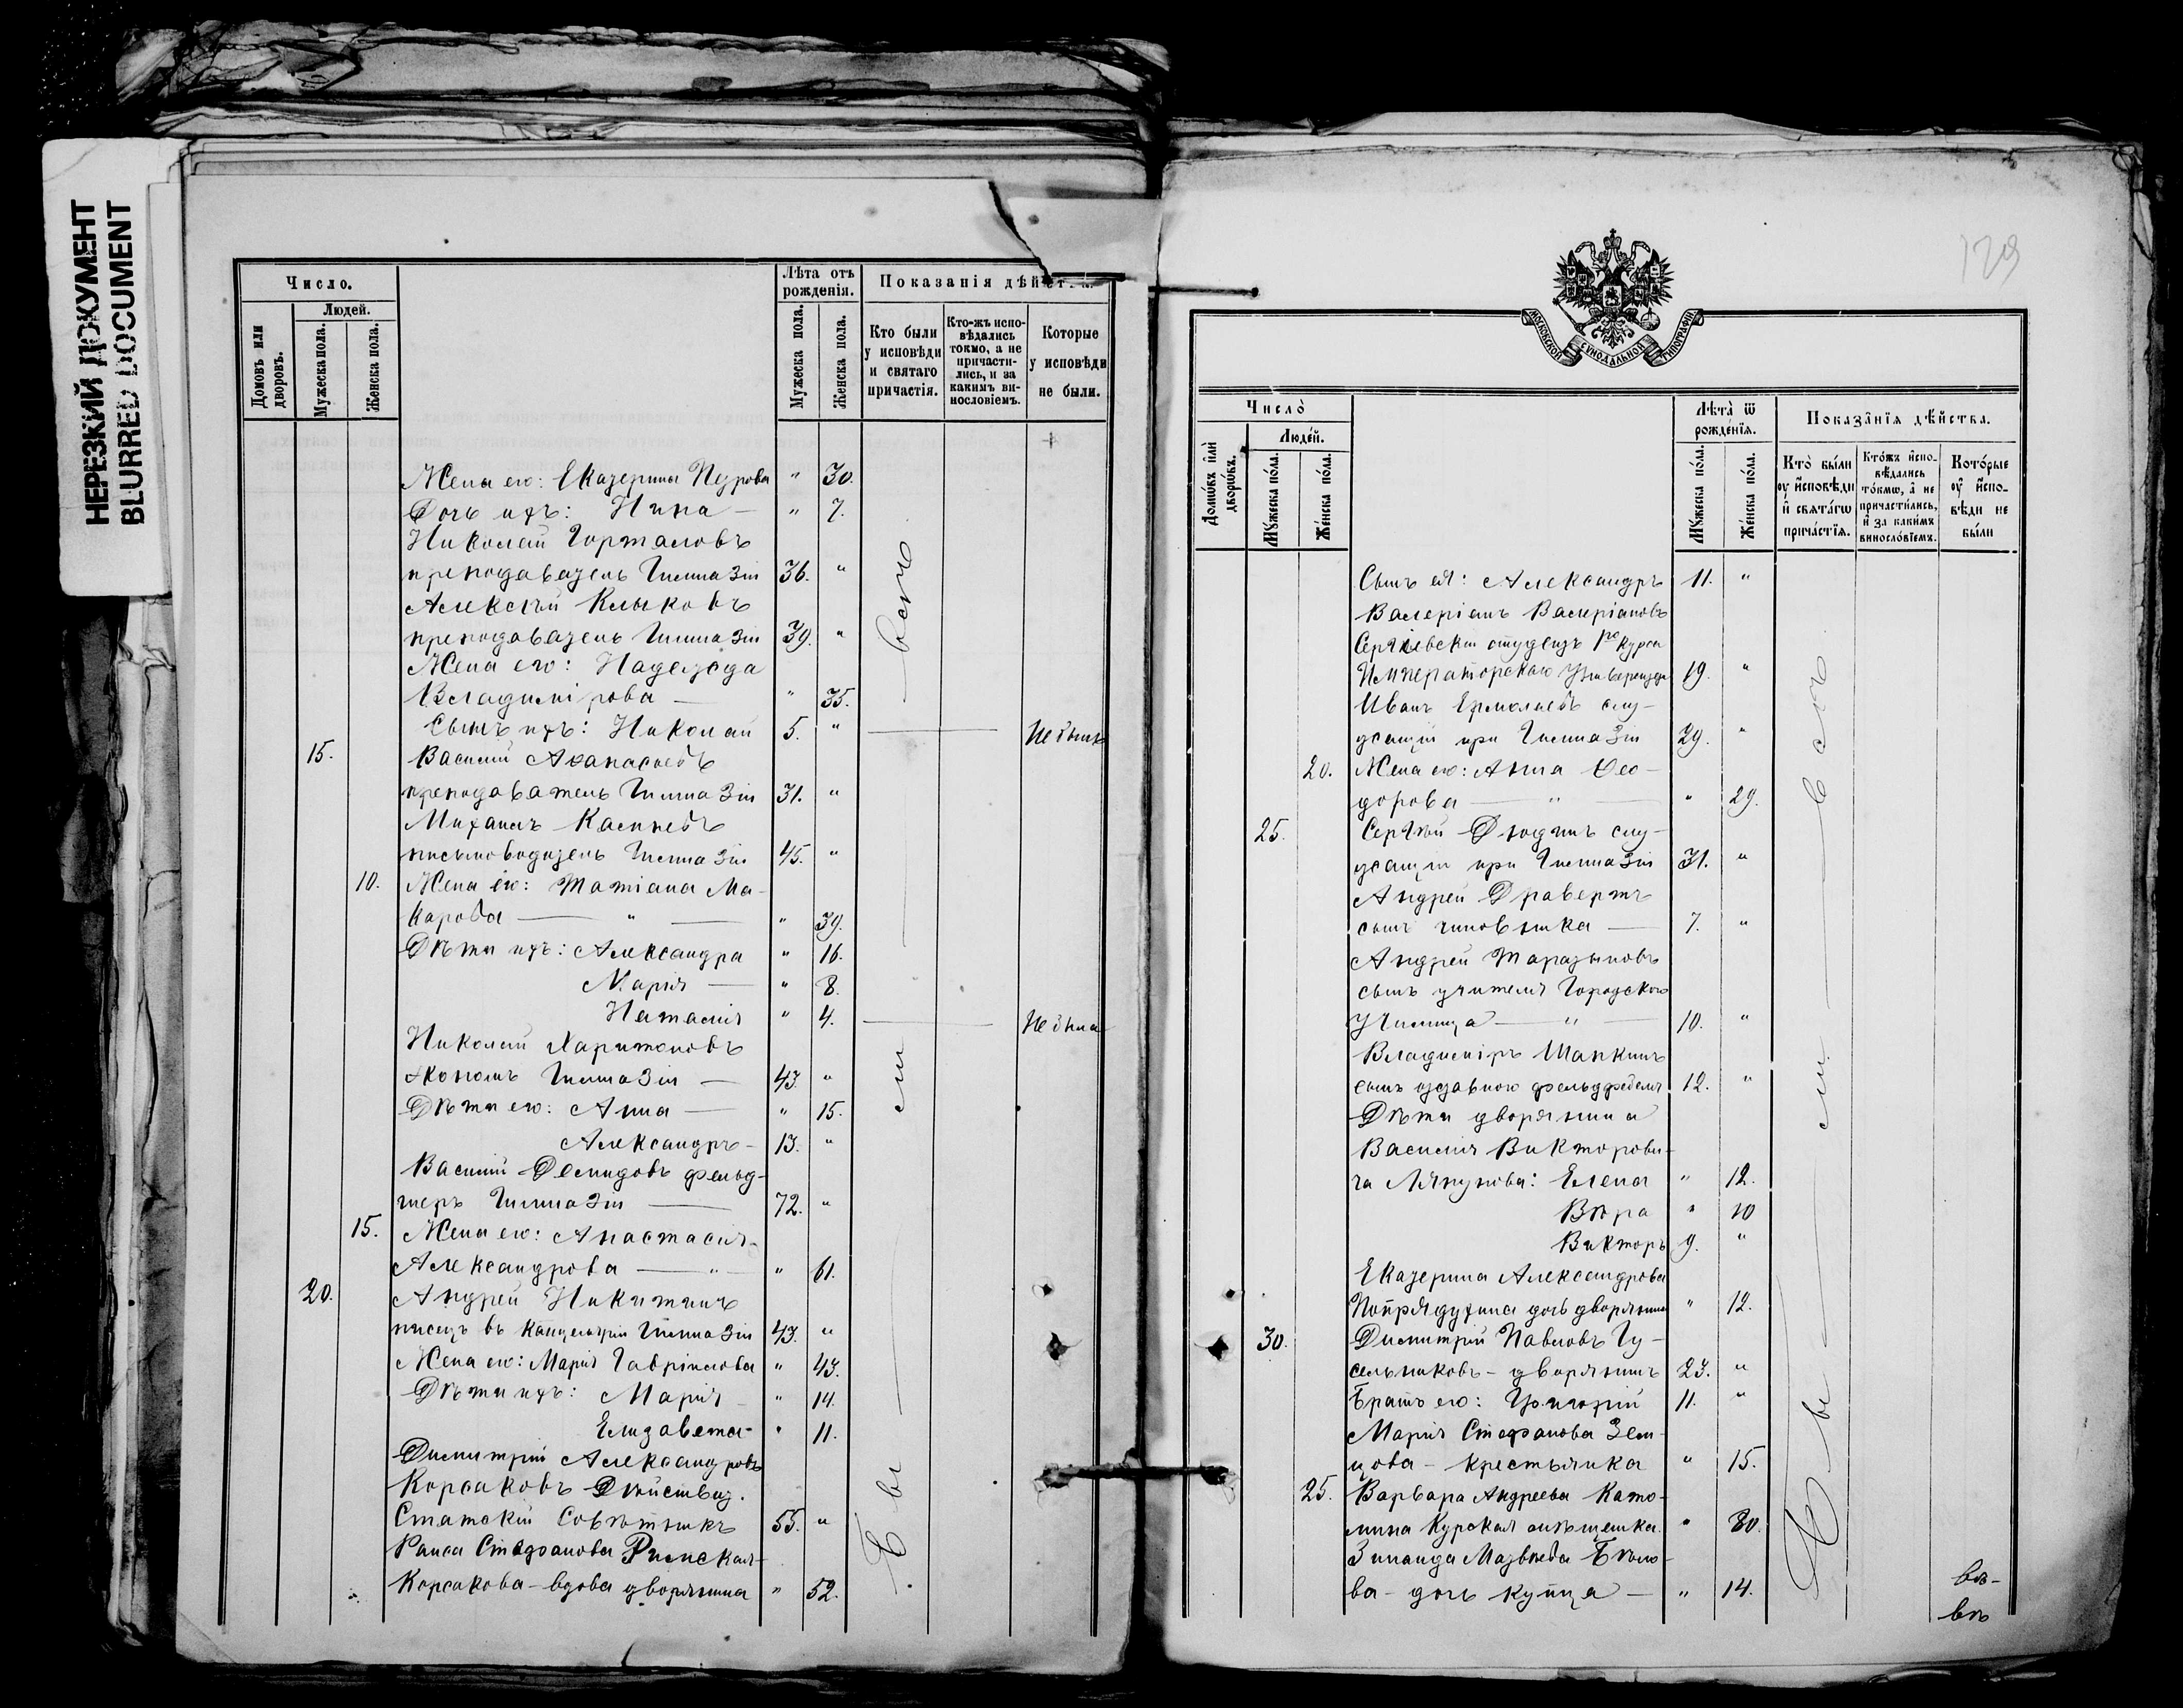 НЕРЕЗКИЙ ДОКУМЕНТ
BLURRED DOCUMENT
Число.
Людей.
Домовъ или дворовъ.
Мужеска пола.
Женска пола.
Лѣта отъ рожденія.
Мужеска пола.
Женска пола.
Показанія дѣйства.
Кто были у исповѣди и святаго причастія.
Кто-жъ исповѣдались токмо, а не причастились, и за какимъ винословіемъ.
Которые у исповѣди не были.
Жена его: Екатерина Петрова " 30.
Дочь ихъ: Нина — " 7.
Николай Горталовъ
преподаватель Гимназіи 36. "
Алексѣй Клыковъ
преподаватель Гимназіи 39. "
Жена его: Надежда
Владимірова — " 35.
Сынъ ихъ: Николай 5. " Не былъ
15. Василій Аѳанасьевъ
преподаватель Гимназіи 31. "
Михаилъ
письмоводитель Гимназіи 45. "
10. Жена его: Татіана Ма-
карова — " — " 39.
Дѣти ихъ: Александра " 16.
Марія — " 8.
Наталія " 4. Не была
Николай Харитоновъ
экономъ Гимназіи — 43. "
Дѣти его: Анна — " 15.
Александръ - 13. "
Василій Демидовъ фельд-
шеръ Гимназіи — 72. "
15. Жена его: Анастасія
Александрова — " — " 61.
20. Андрей Никитинъ
писецъ въ Канцеляріи Гимназіи 43. "
Жена его: Марія Гавріилова " 43.
Дѣти ихъ: Марія " 14.
Елизавета - " 11.
Димитрій Александровъ
Корсаковъ Дѣйствит.
Статскій Совѣтникъ 55. "
Раиса Стефанова Римская-
Корсакова - вдова дворянина " 52.
всѣ
129
МОСКОВСКОЙ СѴНОДАЛЬНОЙ ТИПОГРАФІИ
Число̀
Людéй.
Домѡ́въ и҆лѝ дворѡ́въ.
Мꙋ́жеска по́ла.
Же́нска по́ла.
Лѣ́та ѿ рожде́нїѧ.
Мꙋ́жеска по́ла.
Же́нска по́ла.
Показа̑нїѧ дѣ́йства.
Кто̀ бы́ли оу҆ и҆сповѣ́ди и҆ свѧта́гѡ прича́стїѧ.
Кто́жъ и҆сповѣ́дались то́кмѡ, а҆ не причасти́лись, и҆ за каки́мъ винослóвїемъ.
Кото́рые оу҆ и҆сповѣ́ди не бы́ли
Сынъ ея: Александръ 11. "
Валеріанъ Валеріановъ
Сергіевскій студентъ 1го курса
Императорскаго Университета 19. "
Иванъ Ермолаевъ слу-
жащій при Гимназіи 29. "
20. Жена его: Анна Ѳео-
дорова — " — " 29.
25. Сергѣй Дюдинъ слу-
жащій при Гимназіи 31. "
Андрей Дравертъ
сынъ чиновника — 7. "
Андрей
сынъ учителя Городского
Училища — " — 10. "
Владиміръ Шапкинъ
сынъ отставного фельдфебеля 12. "
Дѣти дворянина
Василія Викторови-
ча Ляпунова: Елена " 12.
Вѣра " 10
Викторъ 9. "
Екатерина Александрова
дочь дворянина " 12.
30. Димитрій Павловъ Гу-
сельниковъ - дворянинъ 23. "
Братъ его: Григорій 11. "
Марія Стефанова Зем-
цова - крестьянка " 15.
25. Варвара Андреева Като-
лина Курская мѣщанка. " 30.
Зинаида Матвѣева Бѣло-
ва - дочь купца — " 14.